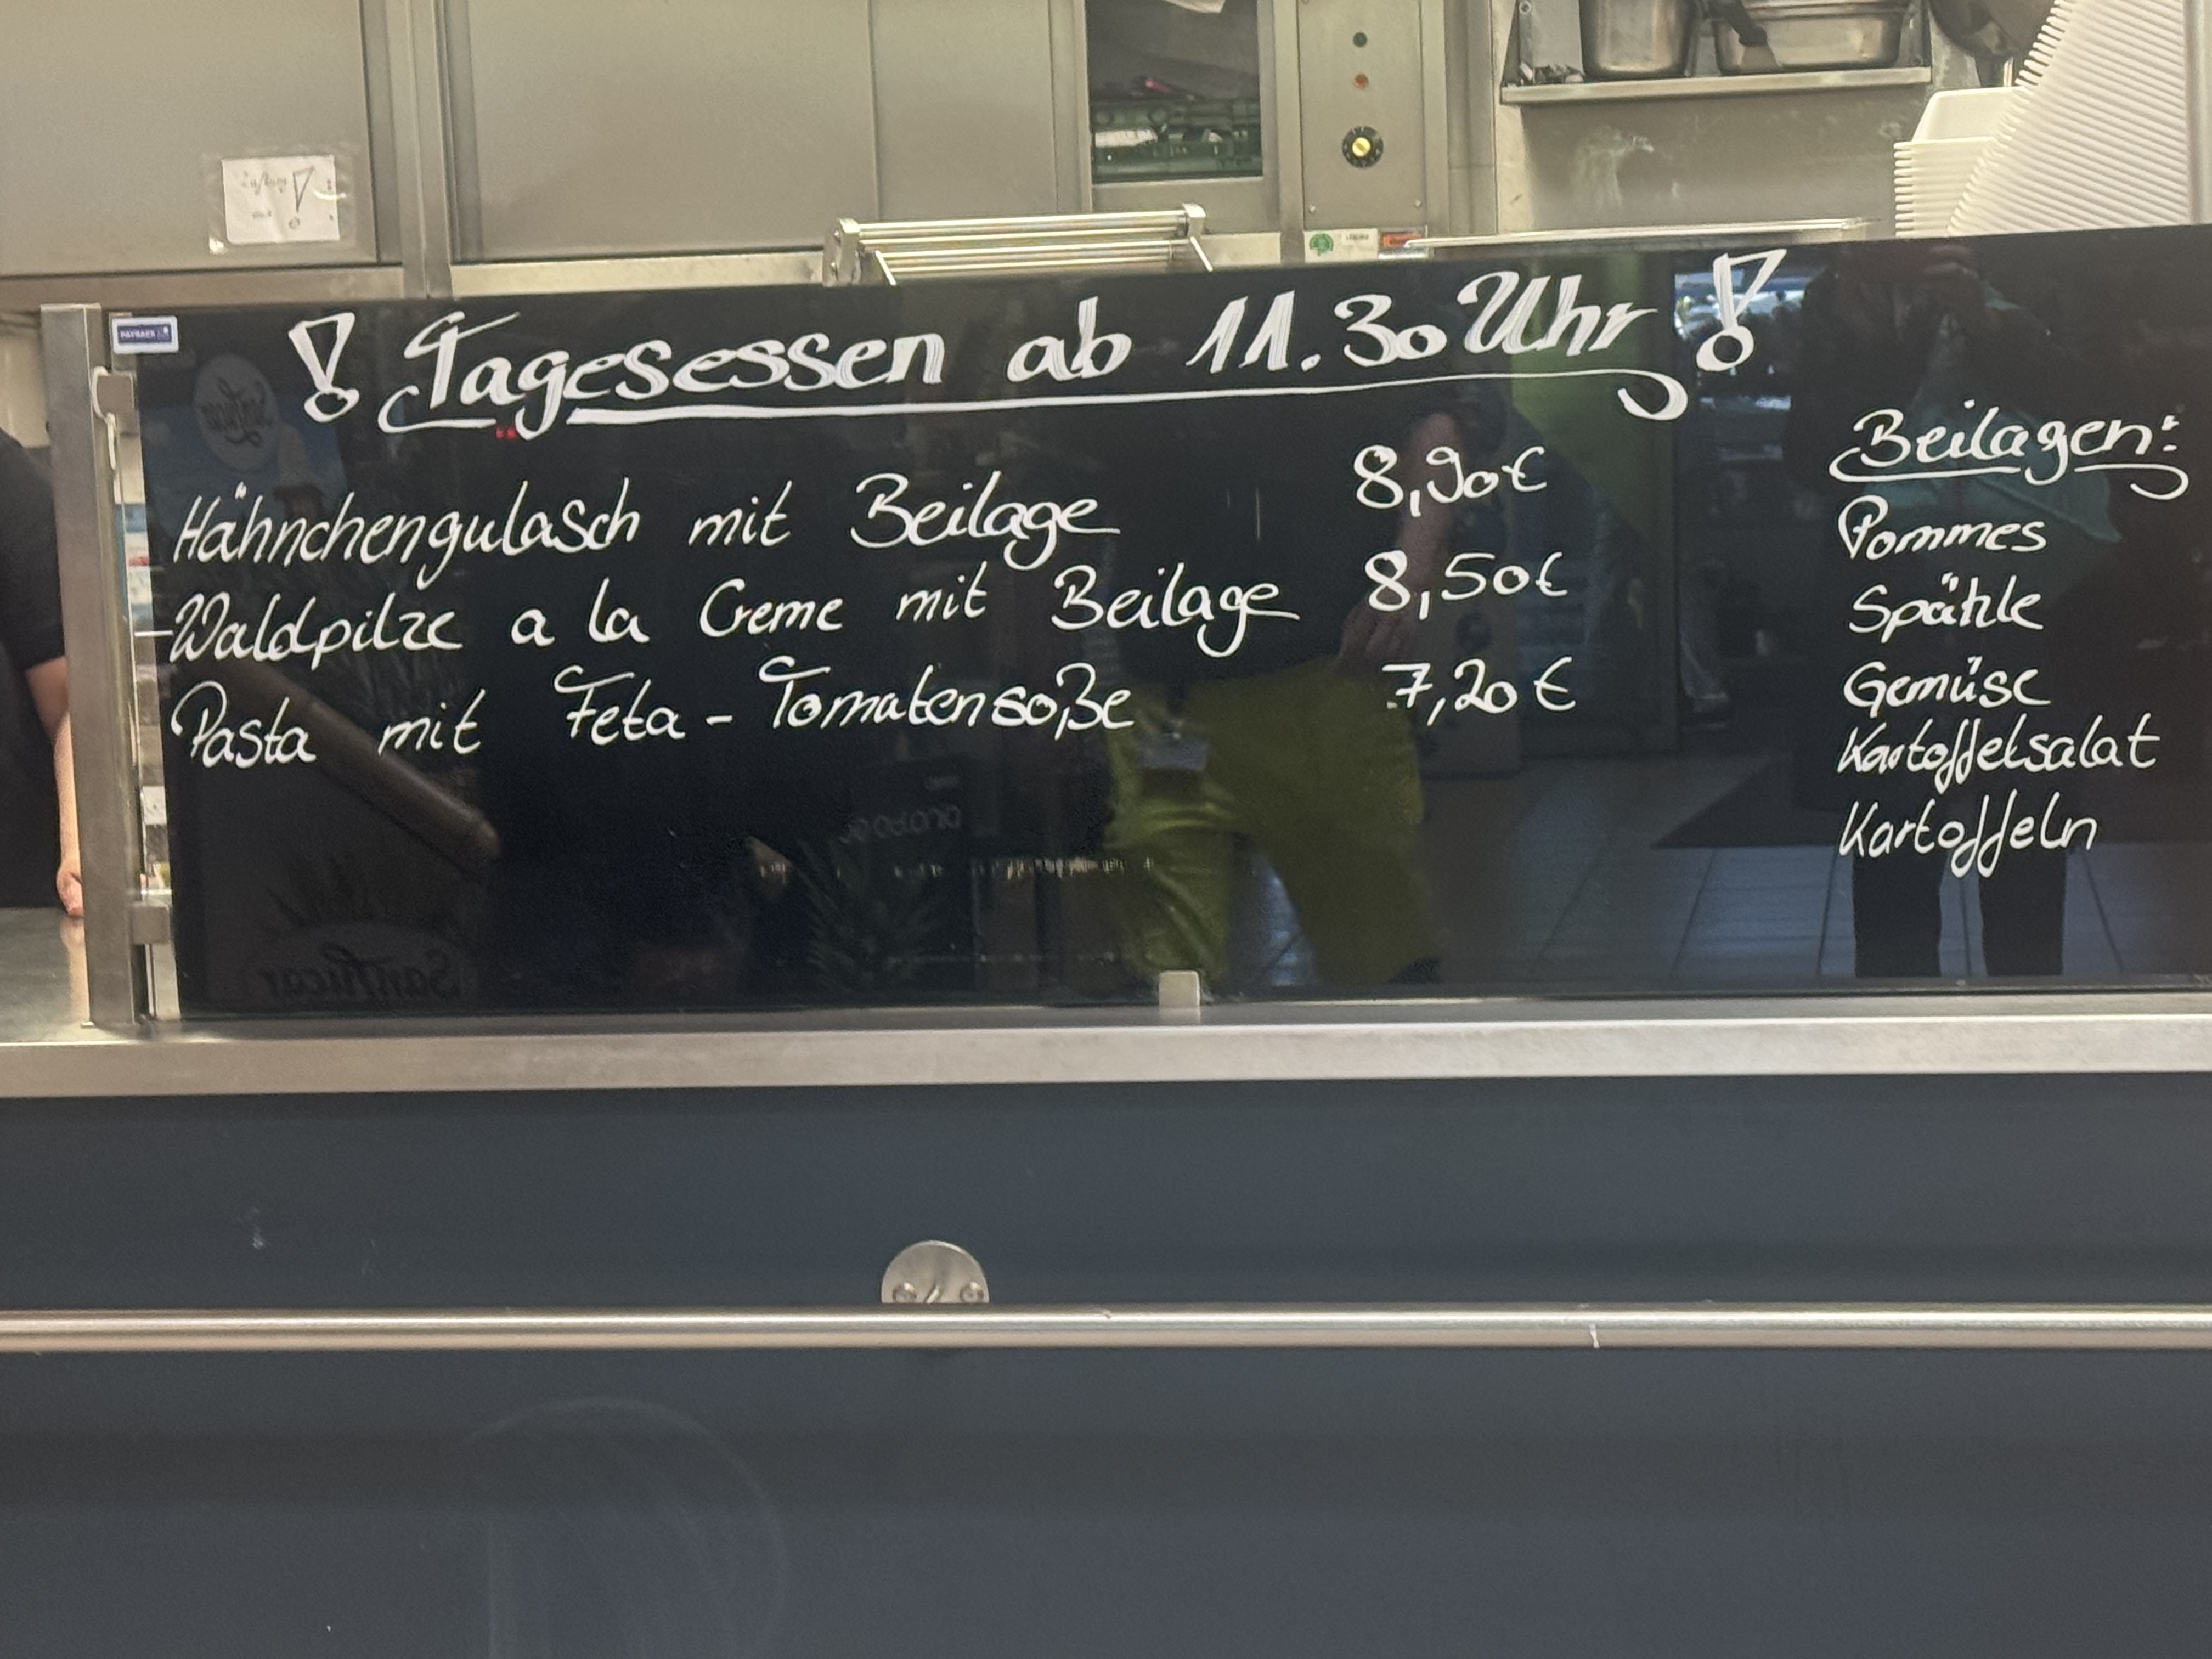 ! Tagesessen ab 11.30 Uhr !
Hähnchengulasch mit Beilage 8,90€
Waldpilze a la Creme mit Beilage 8,50€
Pasta mit Feta-Tomatensoße 7,20€
Beilagen:
Pommes
Spätzle
Gemüse
Kartoffelsalat
Kartoffeln
PAYBACK
SanLucar